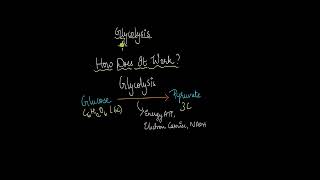 Glycolysis
How Does It Work?
Glycolysis
Glucose → Pyruvate
C6H12O6 (6C) 3C
Energy ATP,
Electron Carrier, NADH